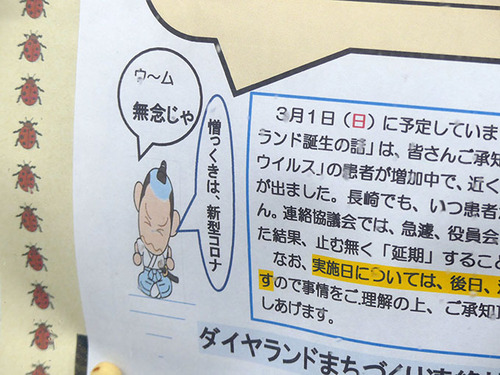 ウ〜ム
無念じゃ
憎っくきは、新型コロナ
3月1日（日）に予定していま
ランド誕生の話」は、皆さんご承知
ウイルス」の患者が増加中で、近く
が出ました。長崎でも、いつ患者
ん。連絡協議会では、急遽、役員会
た結果、止む無く「延期」すること
なお、実施日については、後日、
すので事情をご理解の上、ご承知
しあげます。
ダイヤランドまちづくり連絡